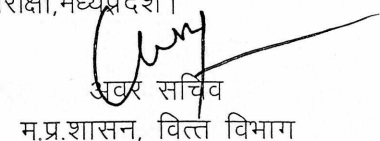 रीक्षा,मध्यप्रदेश।
अवर सचिव
म.प्र.शासन, वित्त विभाग